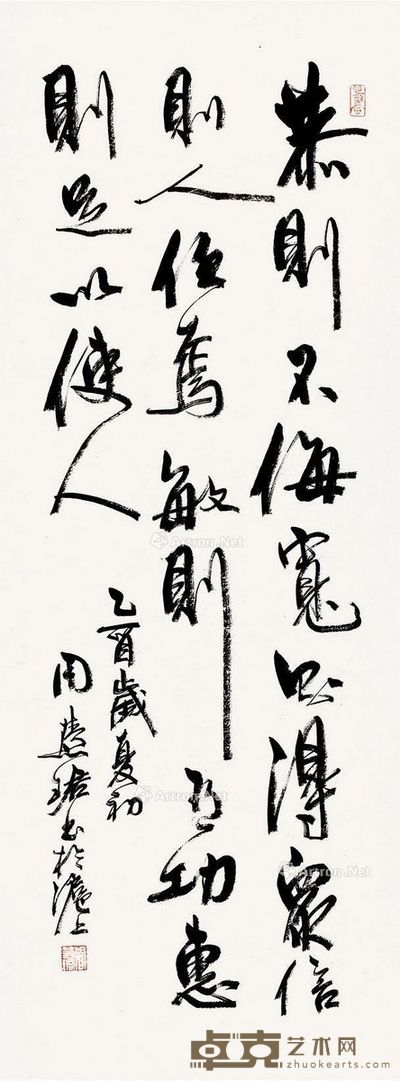 恭則不侮寬則得眾信
則人任焉敏則有功惠
則足以使人
乙酉歲夏初
周慧珺書於滬上
Artron.Net
Artron.Net
Artron.Net
卓克艺术网
zhuokearts.com